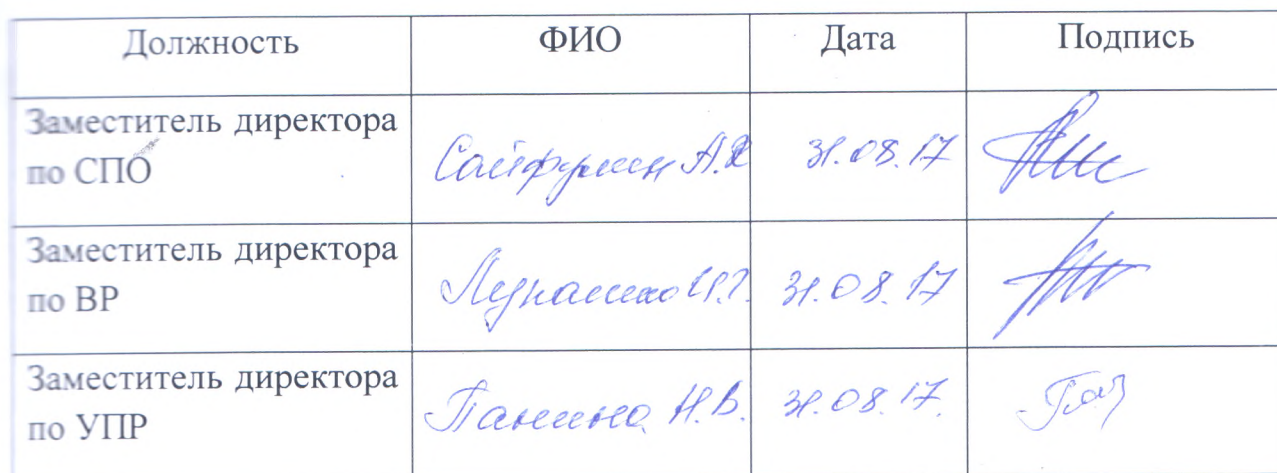 Должность ФИО Дата Подпись
Заместитель директора
по СПО Сайфулин А.Х 31.08.17
Заместитель директора
по ВР И.Г. 31.08.17
Заместитель директора
по УПР Панина Н.В. 31.08.17.